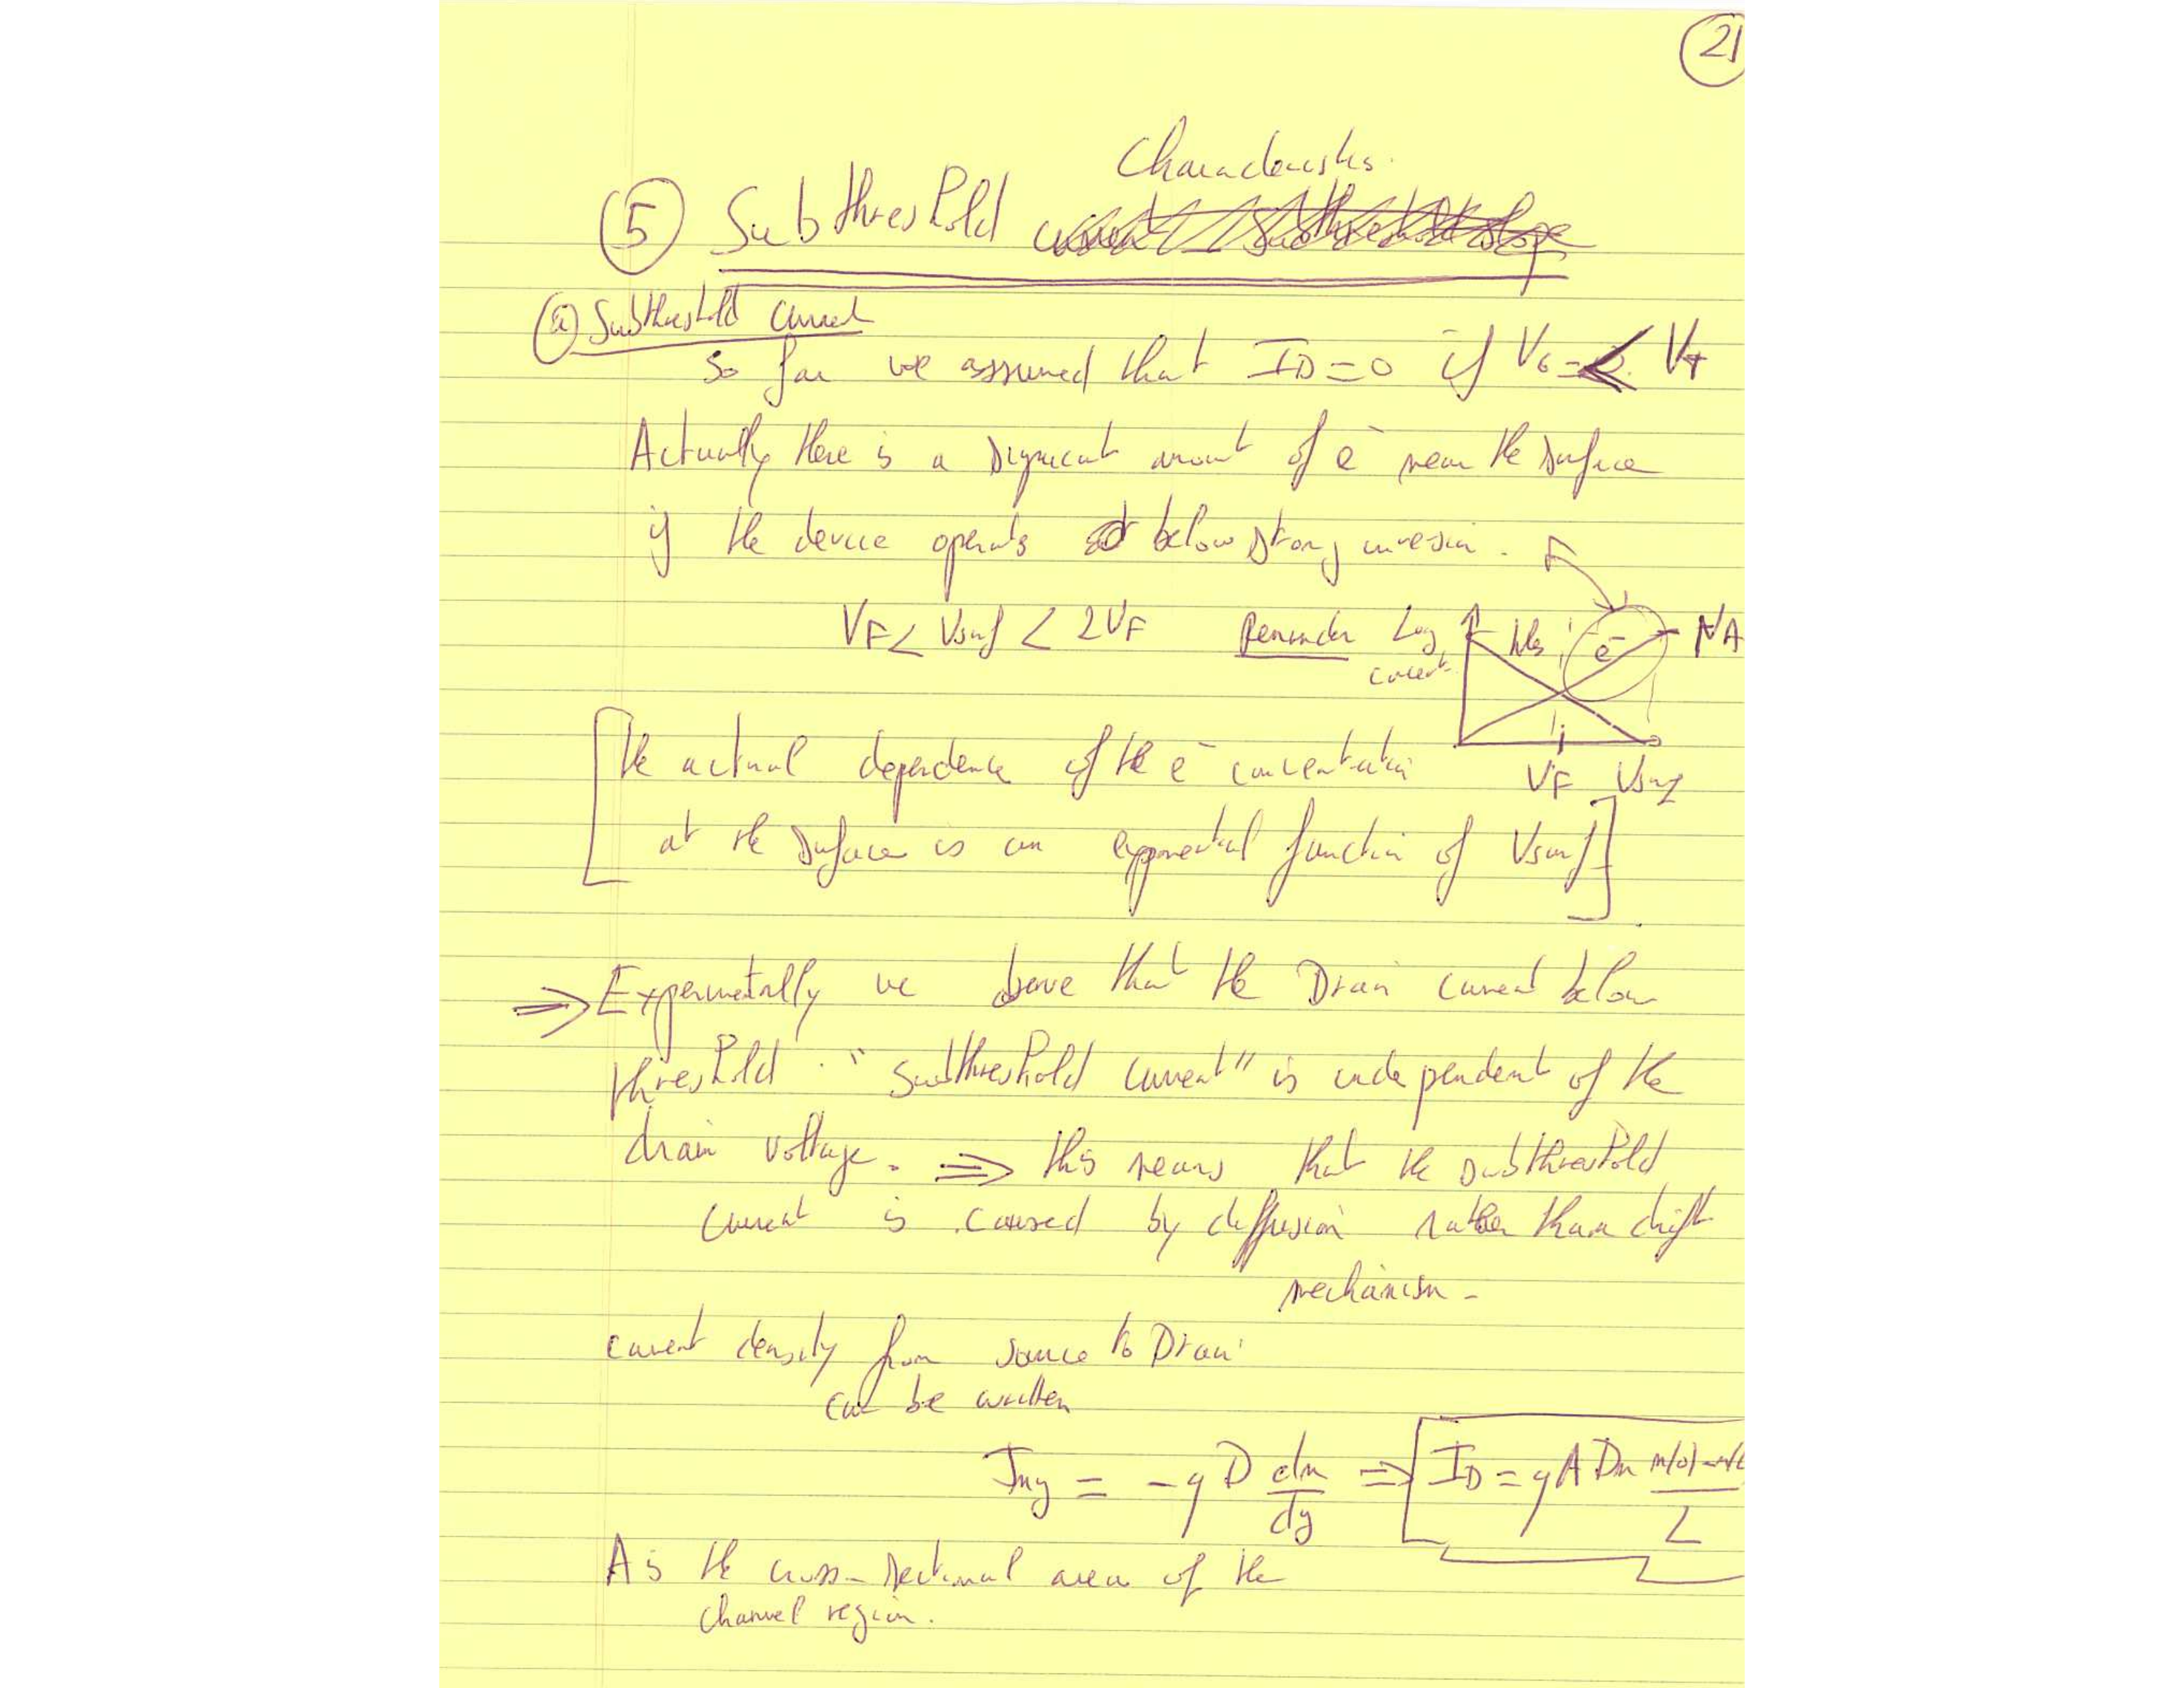 21
Characteristics.
5 Subthreshold
(a) Subthreshold current
so far we assumed that ID=0 if VG < VT
Actually there is a significant amount of e⁻ near the surface
if the device operates below strong inversion.
VF < Vsurf < 2VF Reminder Log concent. e⁻ NA
VF Vsurf
[the actual dependence of the e⁻ concentration
at the surface is an exponential function of Vsurf]
⇒ Experimentally we observe that the Drain current below
threshold "subthreshold current" is independent of the
drain voltage. ⇒ this means that the subthreshold
current is caused by diffusion rather than drift
mechanism -
current density from source to Drain
can be written
Jny = -q D dn/dy ⇒ ID = q A Dn n(0)-n(L / L
A is the cross-sectional area of the
channel region.